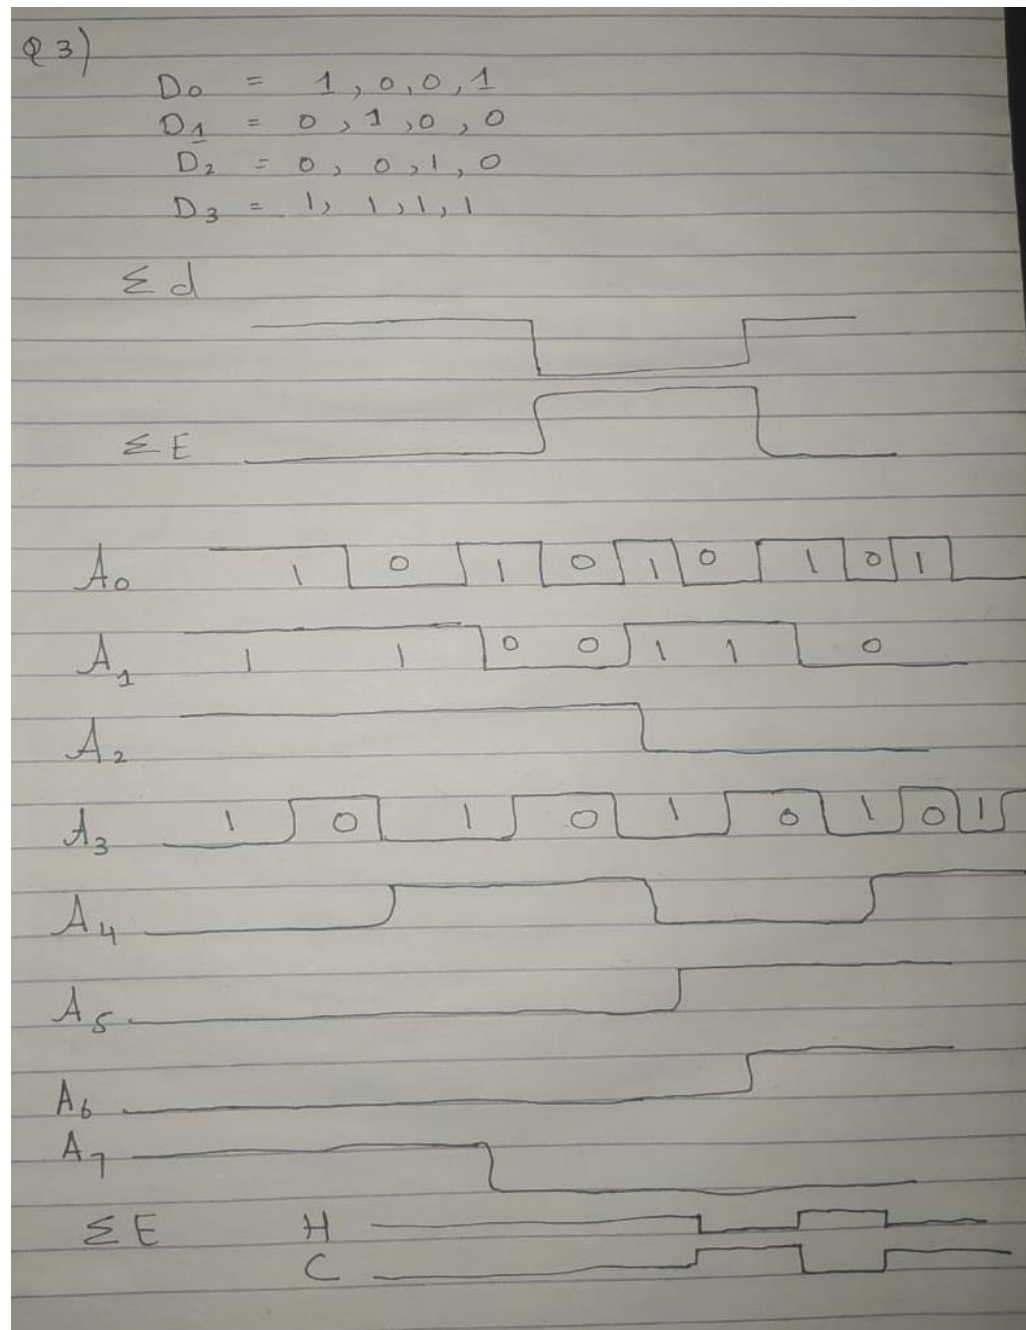 Q 3)
D0 = 1, 0, 0, 1
D1 = 0, 1, 0, 0
D2 = 0, 0, 1, 0
D3 = 1, 1, 1, 1
Σ d
Σ E
A0 1 0 1 0 1 0 1 0 1
A1 1 1 0 0 1 1 0
A2
A3 1 0 1 0 1 0 1 0 1
A4
A5
A6
A7
Σ E H
C